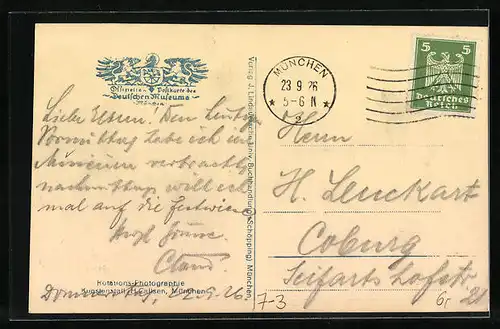 Offizielle Postkarte des
Deutschen Museums
München
Liebe Eltern! Den heutigen
Vormittag habe ich im
Museum verbracht,
nachmittag will ich
mal auf die Festwiese
Herzl. Grüsse
Donnerstag, 23.9.26
Rotations-Photographie
Kunstanstalt, München
Verlag J. Lindauersche Univ. Buchhandlung (Schöpping) München.
MÜNCHEN
23 9 26
5-6 N
2
5 5
Deutsches
Reich
Herrn
H. Leuckart
Coburg
Seifartshofstr
21
7-3
Gr